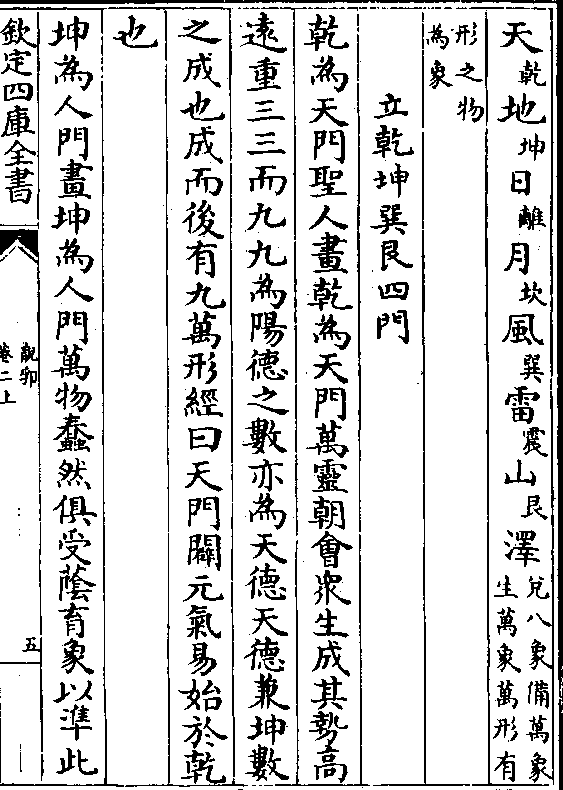 天乾地坤日離月坎風巽雷震山艮澤兌八象備萬象生萬象萬形有
形之物為象
立乾坤巽艮四門
乾為天門聖人畫乾為天門萬靈朝會衆生成其勢高
遠重三三而九九為陽德之數亦為天德天德兼坤數
之成也成而後有九萬形經曰天門闢元氣易始於乾
也
坤為人門畫坤為人門萬物蠢然俱受蔭育象以準此
欽定四庫全書
卷二上
五